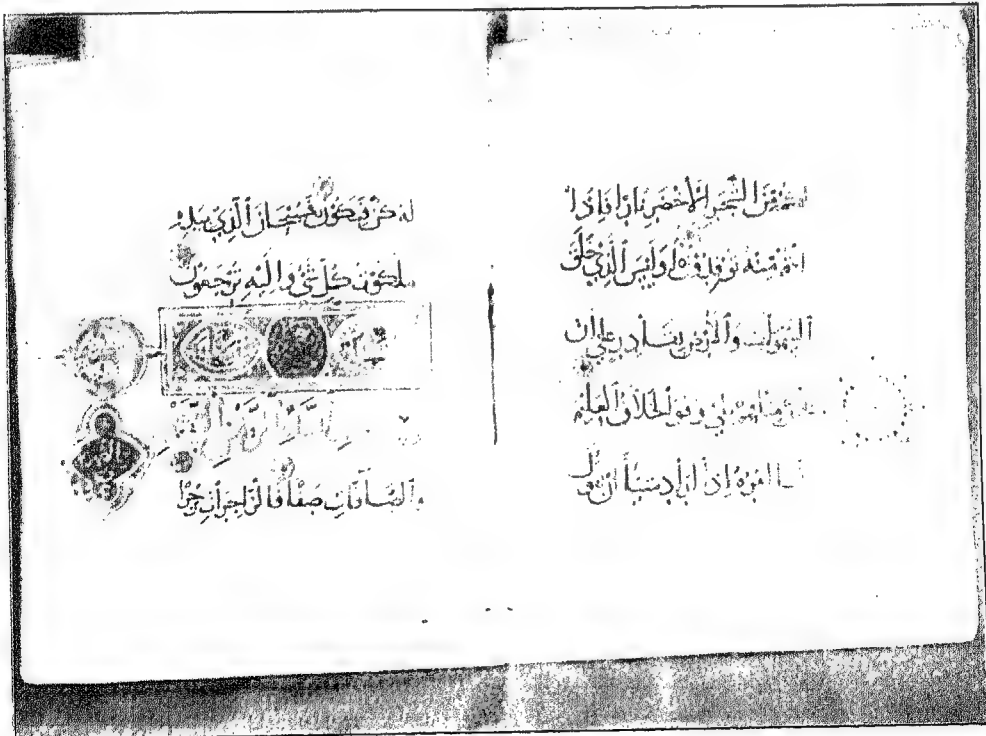 لكم من الشجر الأخضر نارا فإذا
أنتم منه توقدون أوليس الذي خلق
السموات والأرض بقادر على أن
يخلق مثلهم بلى وهو الخلاق العليم
إنما أمره إذا أراد شيئا أن يقول
له كن فيكون فسبحان الذي بيده
ملكوت كل شيء وإليه ترجعون
بسم الله الرحمن
والصافات صفا فالزاجرات زجرا